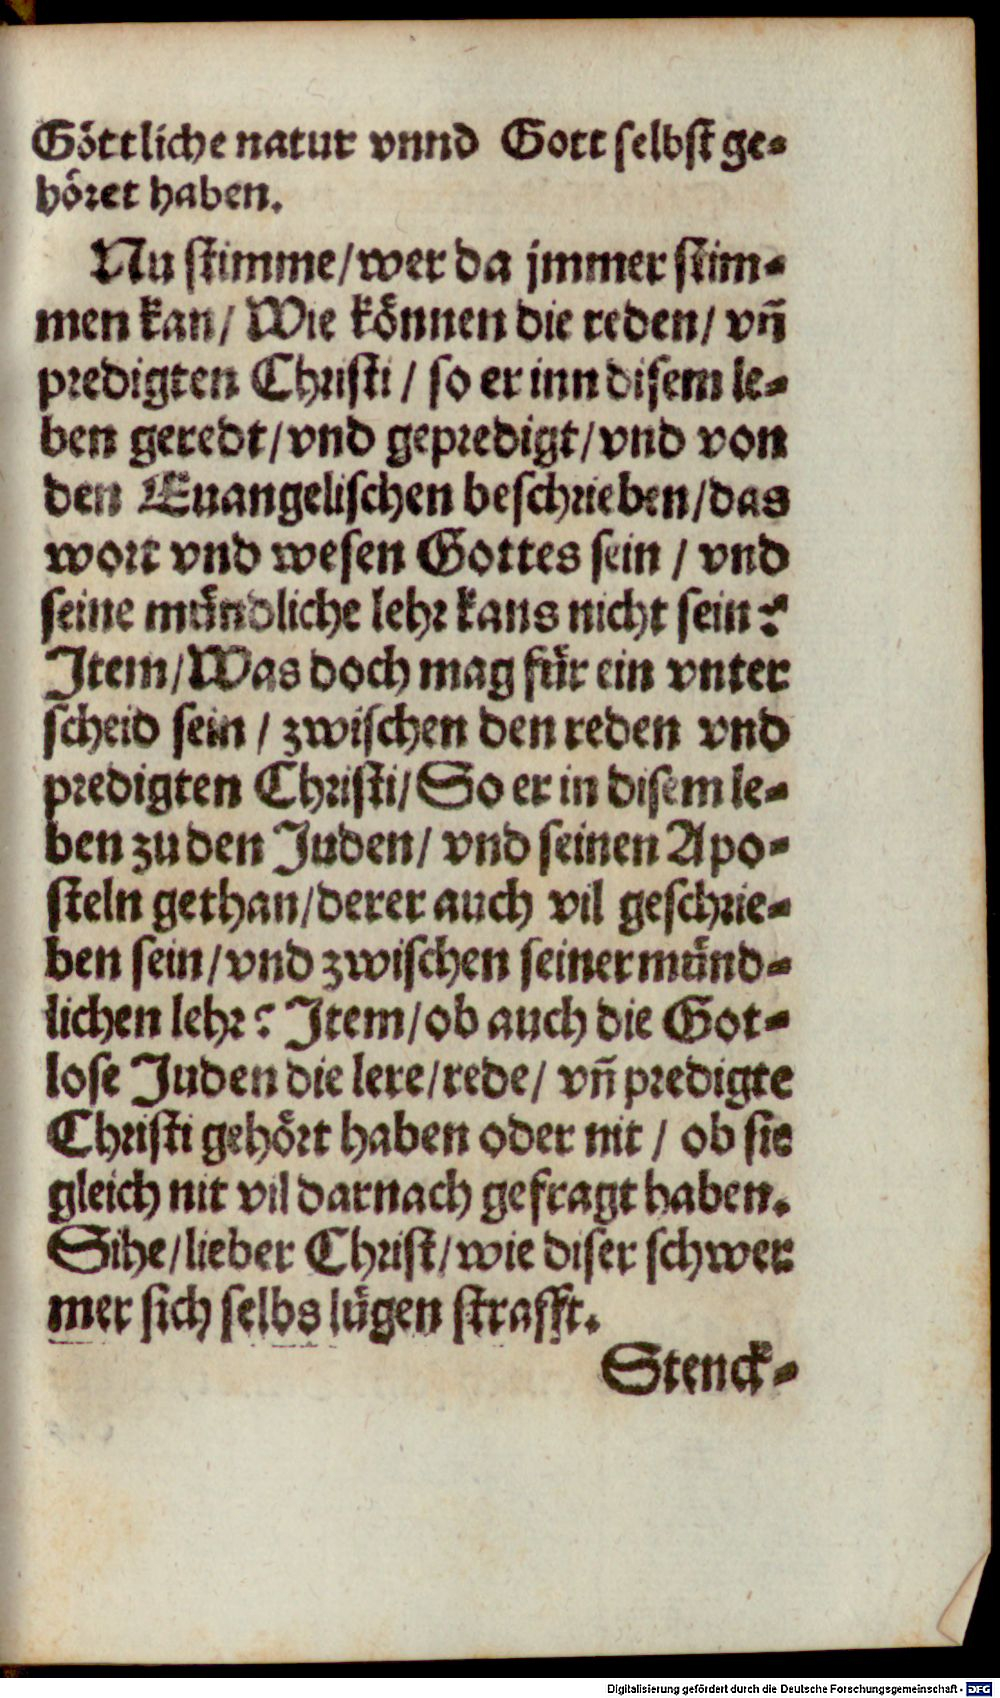 Göttliche natur vnnd Gott selbst ge-
höret haben.
Nu stimme/wer da jmmer stim-
men kan/ Wie können die reden/ vñ
predigten Christi / so er inn disem le-
ben geredt/vnd gepredigt/vnd von
den Euangelischen beschrieben/das
wort vnd wesen Gottes sein / vnd
seine mündliche lehr kans nicht sein?
Item/Was doch mag für ein vnter
scheid sein / zwischen den reden vnd
predigten Christi/ So er in disem le-
ben zu den Juden/ vnd seinen Apo-
steln gethan/derer auch vil geschrie-
ben sein/vnd zwischen seiner münd-
lichen lehr? Item/ob auch die Got-
lose Juden die lere/rede/ vñ predigte
Christi gehört haben oder nit / ob sie
gleich nit vil darnach gefragt haben.
Sihe/lieber Christ/wie diser schwer
mer sich selbs lügen strafft.
Stenck-
Digitalisierung gefördert durch die Deutsche Forschungsgemeinschaft - DFG